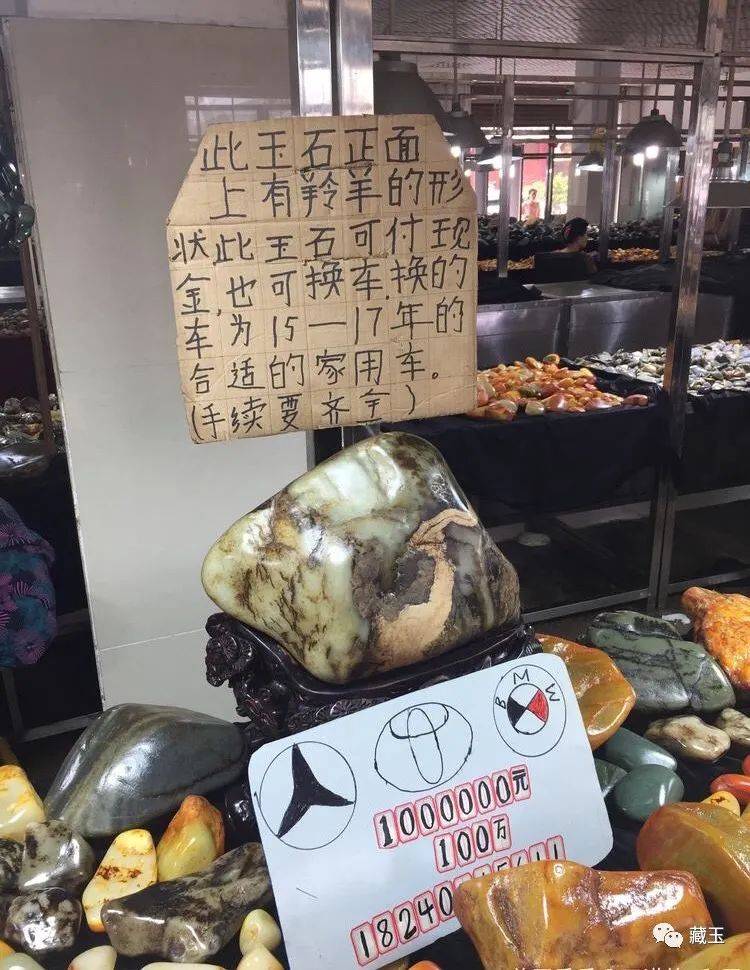 此玉石正面
上有羚羊的形
状此玉石可付现
金,也可换车,换的
车为15一17年的
合适的家用车。
(手续要齐全)
BMW
1000000元
100万
藏玉